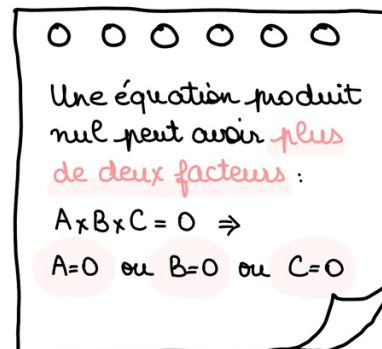 Une équation produit
nul peut avoir plus
de deux facteurs :
A×B×C = 0 ⇒
A=0 ou B=0 ou C=0